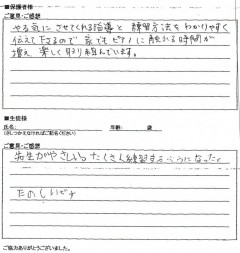 ■保護者様
ご意見・ご感想
やる気にさせてくれる指導と練習方法をわかりやすく
伝えて下さるので家でもピアノに触れる時間が
増え楽しく取り組んでいます。
■生徒様
氏名: 年齢: 歳
(さしつかえなければご記名ください)
ご意見・ご感想
先生がやさしい。たくさん練習するようになった
たのしいピア
ご協力ありがとうございました。